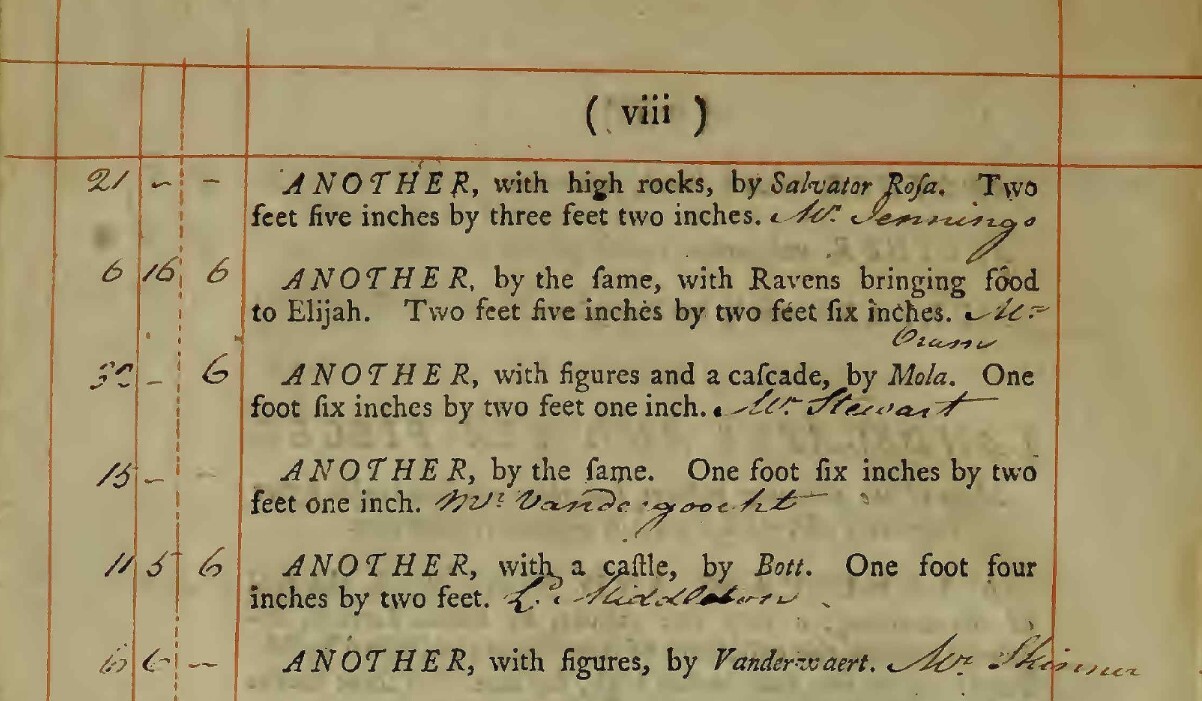 ( viii )
21 – – ANOTHER, with high rocks, by Salvator Roſa. Two
feet five inches by three feet two inches. Mr. Jennings
6 16 6 ANOTHER, by the ſame, with Ravens bringing food
to Elijah. Two feet five inches by two feet ſix inches. Mr
– 6 ANOTHER, with figures and a caſcade, by Mola. One
foot ſix inches by two feet one inch. Mr. Stewart
15 – – ANOTHER, by the ſame. One foot ſix inches by two
feet one inch. Mr. Vandergoocht
11 5 6 ANOTHER, with a caſtle, by Bott. One foot four
inches by two feet. Ld. Middleton
6 6 – ANOTHER, with figures, by Vanderwaert. Mr. Skinner